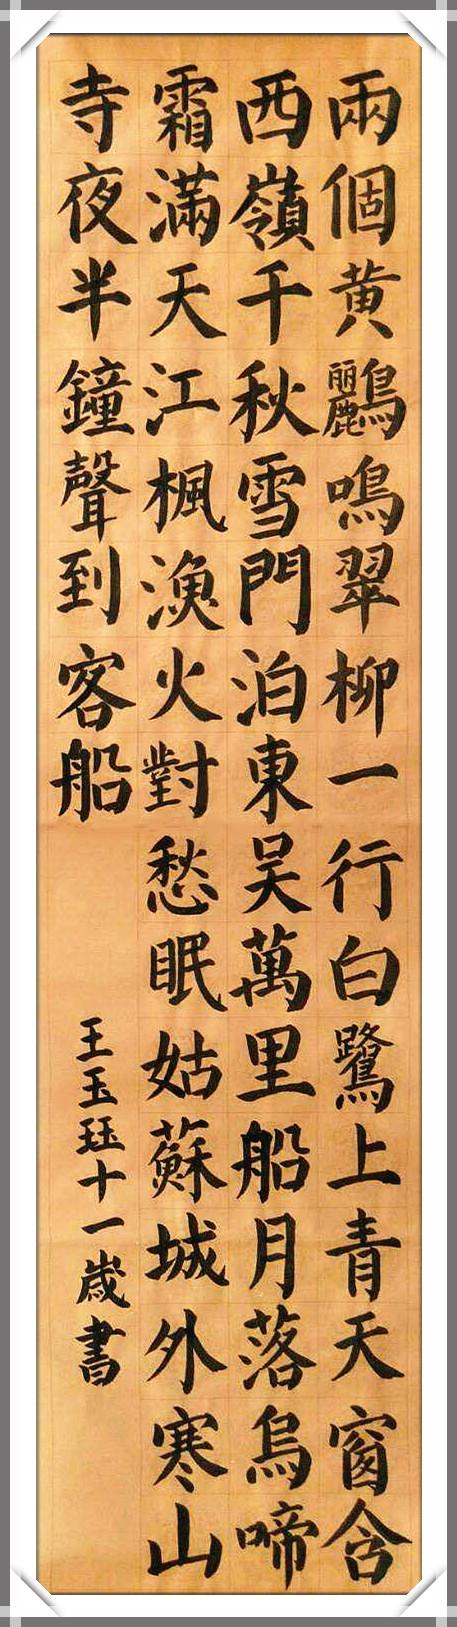 兩個黄鸝鳴翠柳一行白鷺上青天窗含
西嶺千秋雪門泊東吴萬里船月落烏啼
霜滿天江楓漁火對愁眠姑蘇城外寒山
寺夜半鐘聲到客船
王玉珏十一歲書